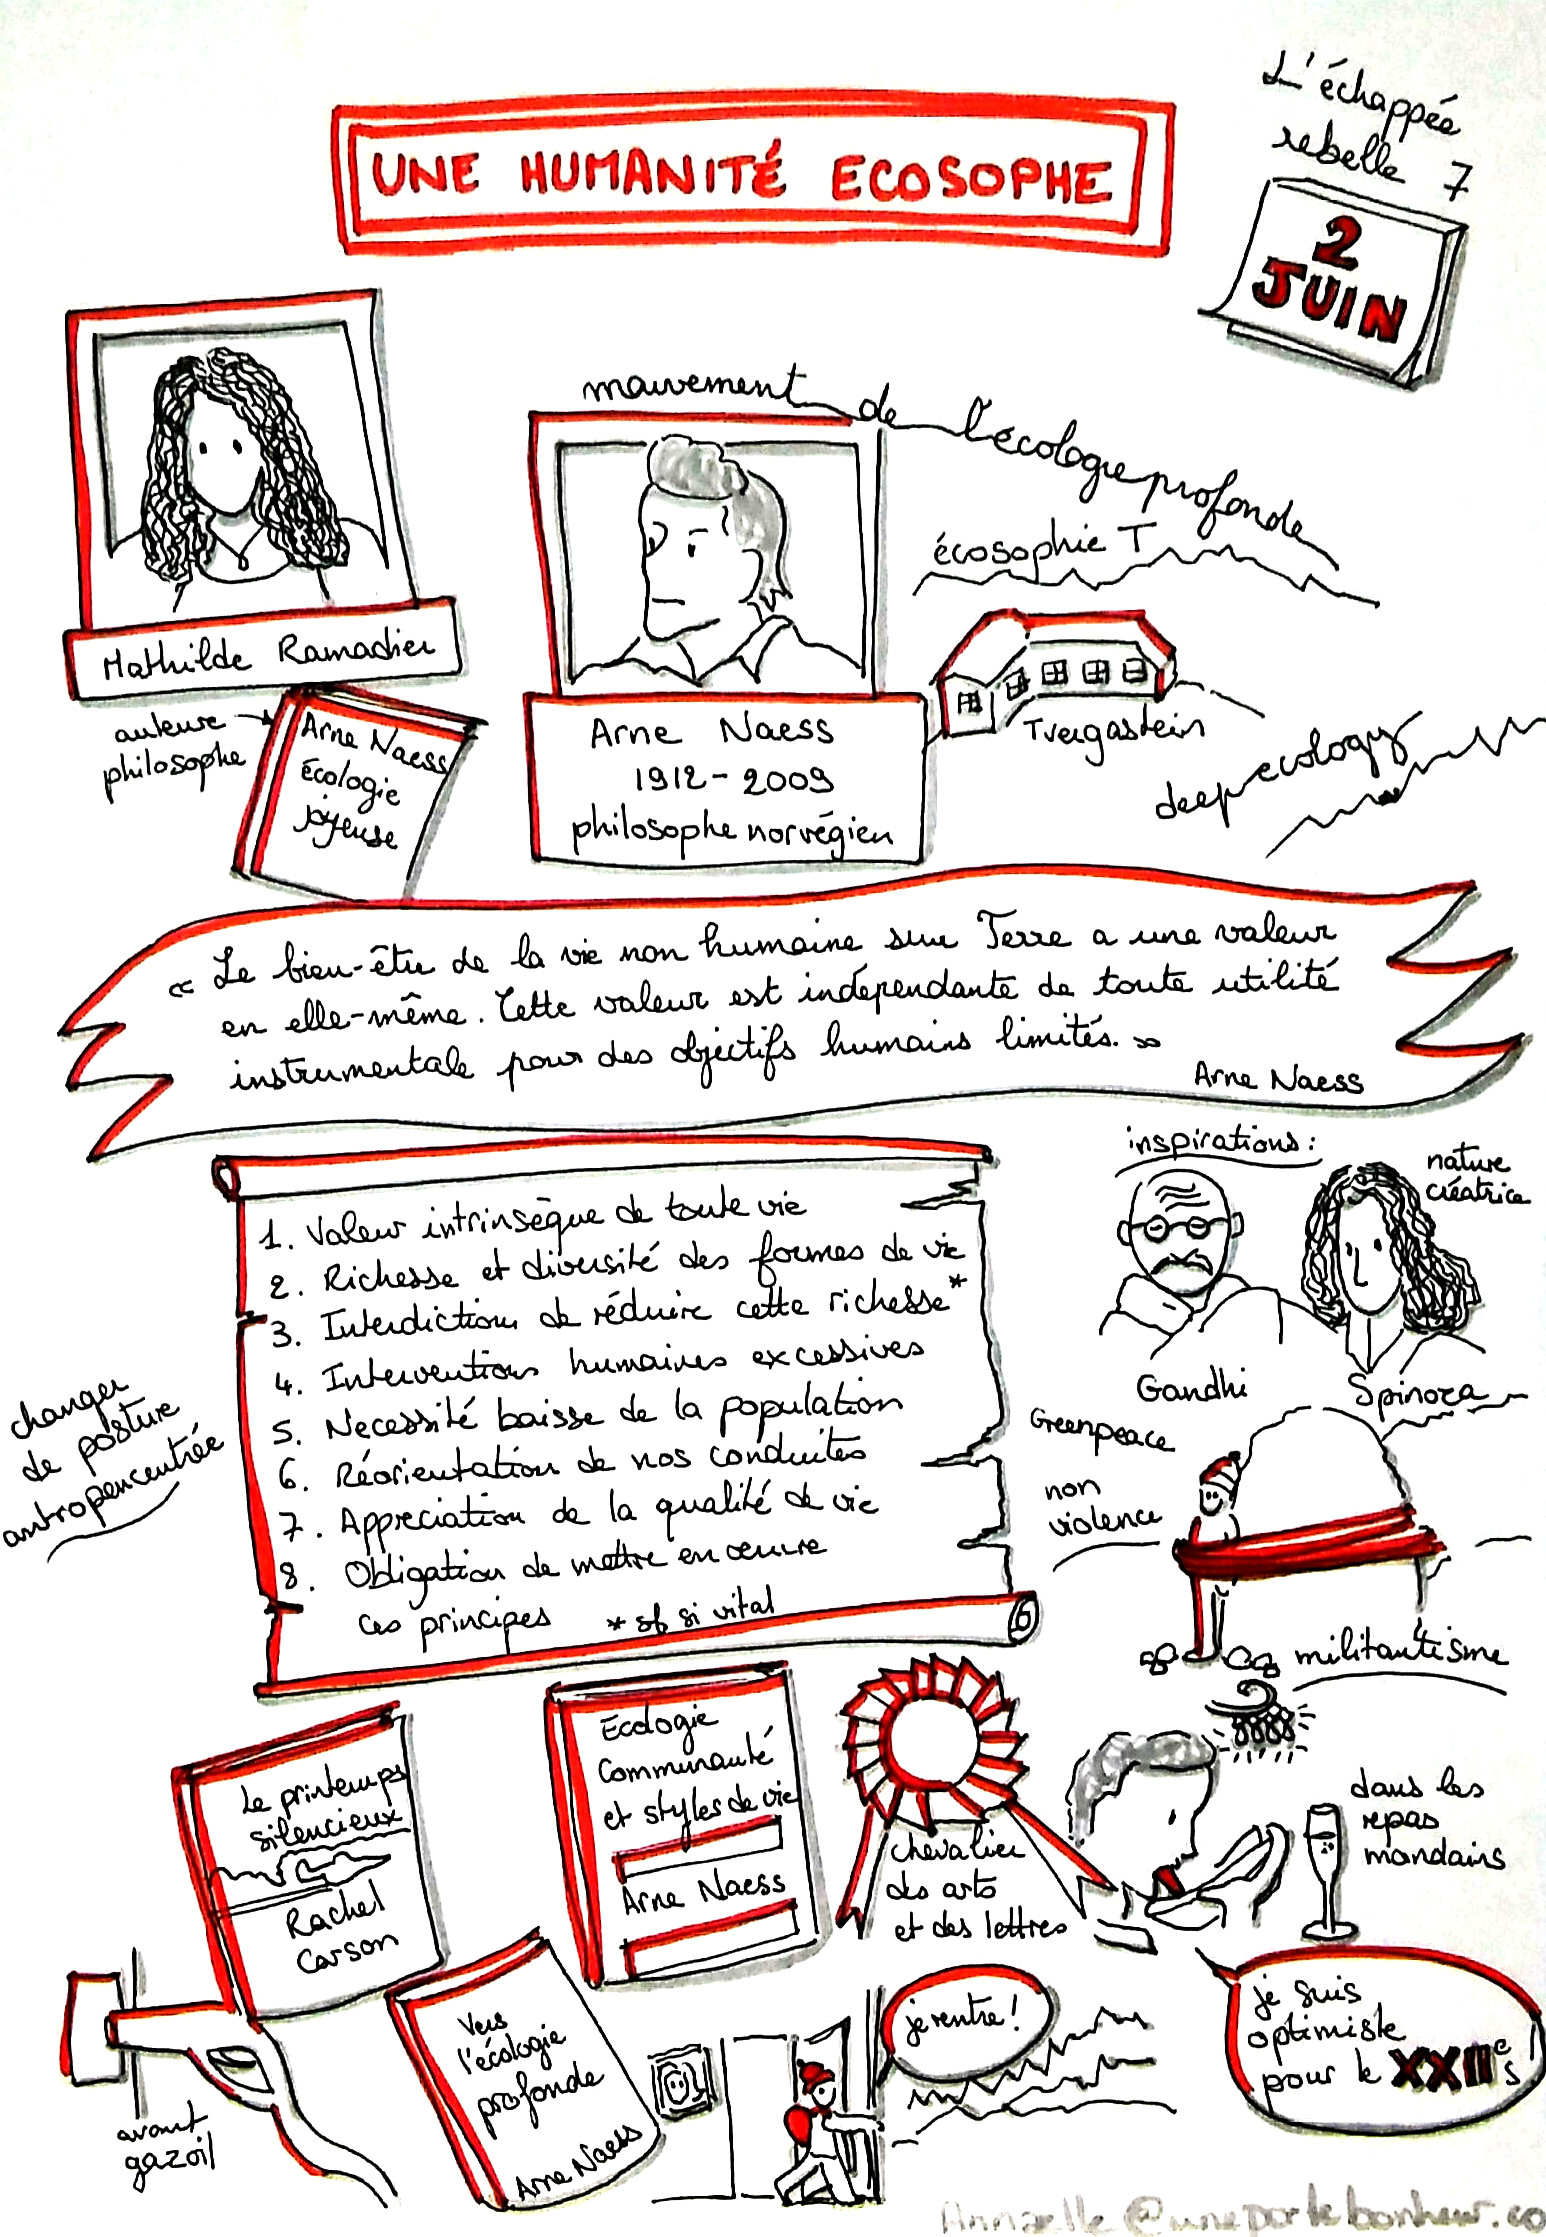 L'échappée
rebelle 7
UNE HUMANITÉ ECOSOPHE
2
JUIN
mouvement de l'écologie profonde
écosophie T
Mathilde Ramadier
auteure
philosophe
Arne Naess
écologie
joyeuse
Arne Naess
1912-2009
philosophe norvégien
Tvergastein
deep ecology
« Le bien-être de la vie non humaine sur Terre a une valeur
en elle-même. Cette valeur est indépendante de toute utilité
instrumentale pour des objectifs humains limités. »
Arne Naess
inspirations :
nature
créatrice
Gandhi
Spinoza
1. Valeur intrinsèque de toute vie
2. Richesse et diversité des formes de vie
3. Interdiction de réduire cette richesse*
4. Interventions humaines excessives
5. Necessité baisse de la population
6. Réorientation de nos conduites
7. Appreciation de la qualité de vie
8. Obligation de mettre en œuvre
ces principes *sf si vital
changer
de posture
antropencentrée
Greenpeace
non
violence
militantisme
Le printemps
silencieux
Rachel
Carson
Ecologie
Communauté
et styles de vie
Arne Naess
chevalier
des arts
et des lettres
dans les
repas
mondains
avant
gazoil
Vers
l'écologie
profonde
Arne Naess
je rentre !
je suis
optimiste
pour le XXIIe s !
Annaelle@uneportebonheur.co